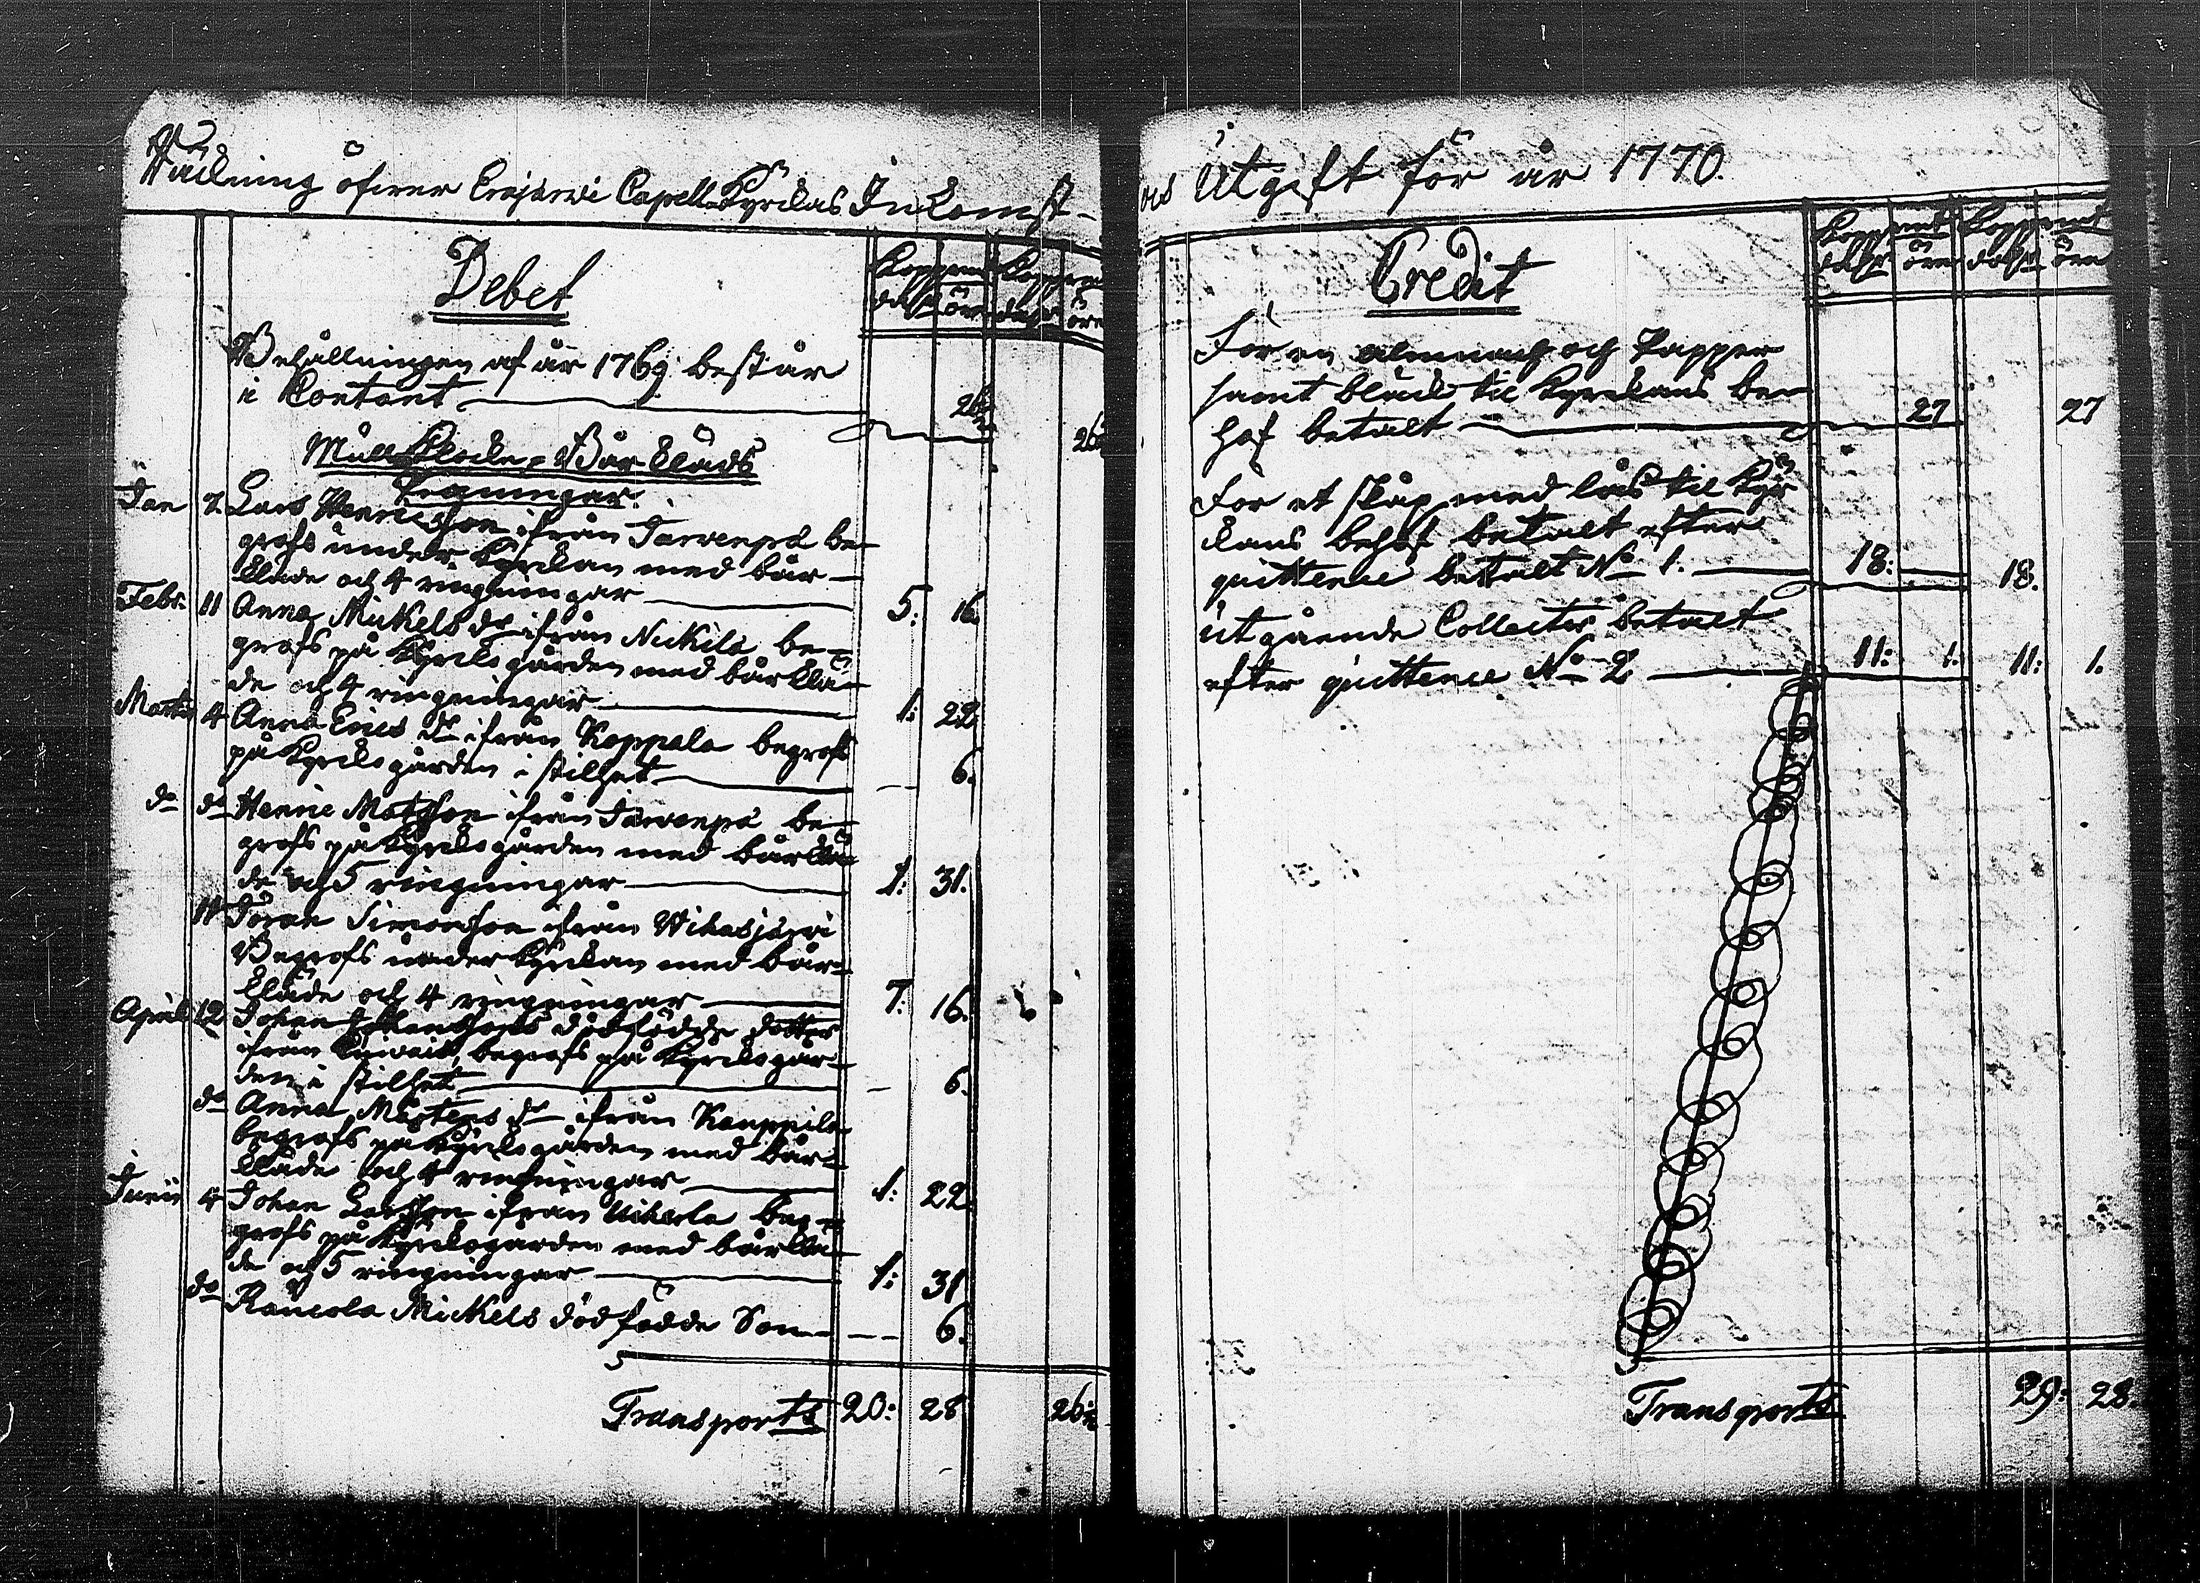 Räckning öfver Erajärwi Capell Kyrckas Inkomst-
Debet
Kopparmt Kopparmt
dalr öre dalr öre
Behållningen af år 1769 består
i Contant 26
26
Mull Klocke- Bår kläds
Legningar.
Jan 2 Lars Henricson ifrån Jarvenpä be-
grofs under Kyrckan med bår-
kläde och 4 ringningar 5: 16.
Febr. 11 Anna Mickels dr ifrån Nickilä be-
grofs på Kyrckogården med bår klä-
de och 4 ringningar 1: 22
Martii 4 Anna Erics dr ifrån Koppala begrofs
på Kyrckogården i stilhet — 6.
do do Henric Matsson ifrån Järvenpä be-
grofs på Kyrckogården med bårklä-
de och 5 ringningar 1: 31.
11 Jöran Simonsson ifrån Wihasjärvi
Begrofs under Kyrckan med bår-
kläde och 4 ringningar 7: 16.
April 12 Johan dödfödde dotter
ifrån begrofs på Kyrckogår-
den i stilhet — 6.
do Anna Mårtens dr ifrån Kauppila
begrofs på Kyrckogården med bår-
kläde och 4 ringningar 1: 22
Junii 4 Johan Larsson ifrån Uiherla be-
grofs på Kyrckogården med bårklä-
de och 5 ringningar 1: 31
do Räucola Mickels dödfödde Son — 6.
Transports 20: 28 26
och Utgift för år 1770.
Credit
Kopparmt Kopparmt
dalr öre dalr öre
För en almanach och Papper
samt bläck til Kyrckans be-
hof betalt 27 27
För et skåp med lås til Kyr
ckans behof betalt efter
quittence betalt No 1. 18: 18.
Utgående Collecter betalt
efter quittence No 2 11: 1. 11: 1.
Transports 29: 28.